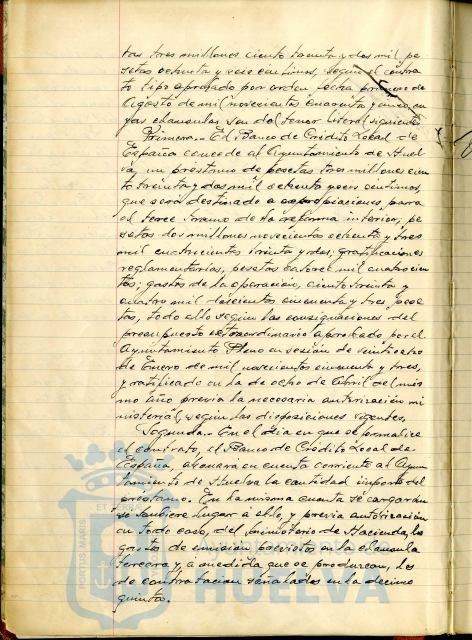 tas tres millones ciento treinta y dos mil pe
setas ochenta y seis centimos, segun el contra
to tipo aprobado por orden fecha primero de
Agosto de mil novecientos cuarenta y cinco, cu
yas clausulas son del tenor literal siguiente:
Primera.- El Banco de Crédito Local de
España concede al Ayuntamiento de Huel
va, un prestamo de pesetas tres millones cien
to treinta y dos mil ochenta y seis centimos,
que será destinado a expropiaciones para
el Tercer Tramo de la reforma interior, pe
setas dos millones novecientas ochenta y tres
mil trescientas treinta y dos; gratificaciones
reglamentarias, pesetas catorce mil cuatrocien
tas; gastos de la operación, ciento treinta y
cuatro mil doscientas cincuenta y tres, pese
tas, todo ello segun las consignaciones del
presupuesto extraordinario aprobado por el
Ayuntamiento Pleno en sesión de veinticatro
de Enero de mil novecientos cincuenta y tres,
y ratificado en la de ocho de Abril del mis
mo año previa la necesaria autorización mi
nisterial, segun las disposiciones vigentes.
Segunda.- En el dia en que se formalice
el contrato, el Banco de Crédito Local de
España, abonara en cuenta corriente al Ayun
tamiento de Huelva la cantidad importe del
prestamo. En la misma cuenta se cargarán
si tuviere lugar a ello, y previa autorización
en todo caso, del Ministerio de Hacienda, los
gastos de emisión previstos en la clausula
tercera y, a medida que se produzcan, los
de contratación señalados en la decimo
quinta.
PORTUS MARIS
ET TERRAE
HUELVA